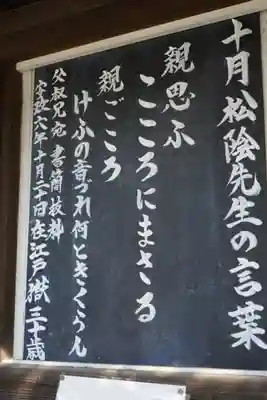 十月松陰先生の言葉
親思ふ
こころにまさる
親ごころ
けふの音づれ何ときくらん
父叔兄宛 書簡抜粋
安政六年十月二十日在江戸獄 三十歳